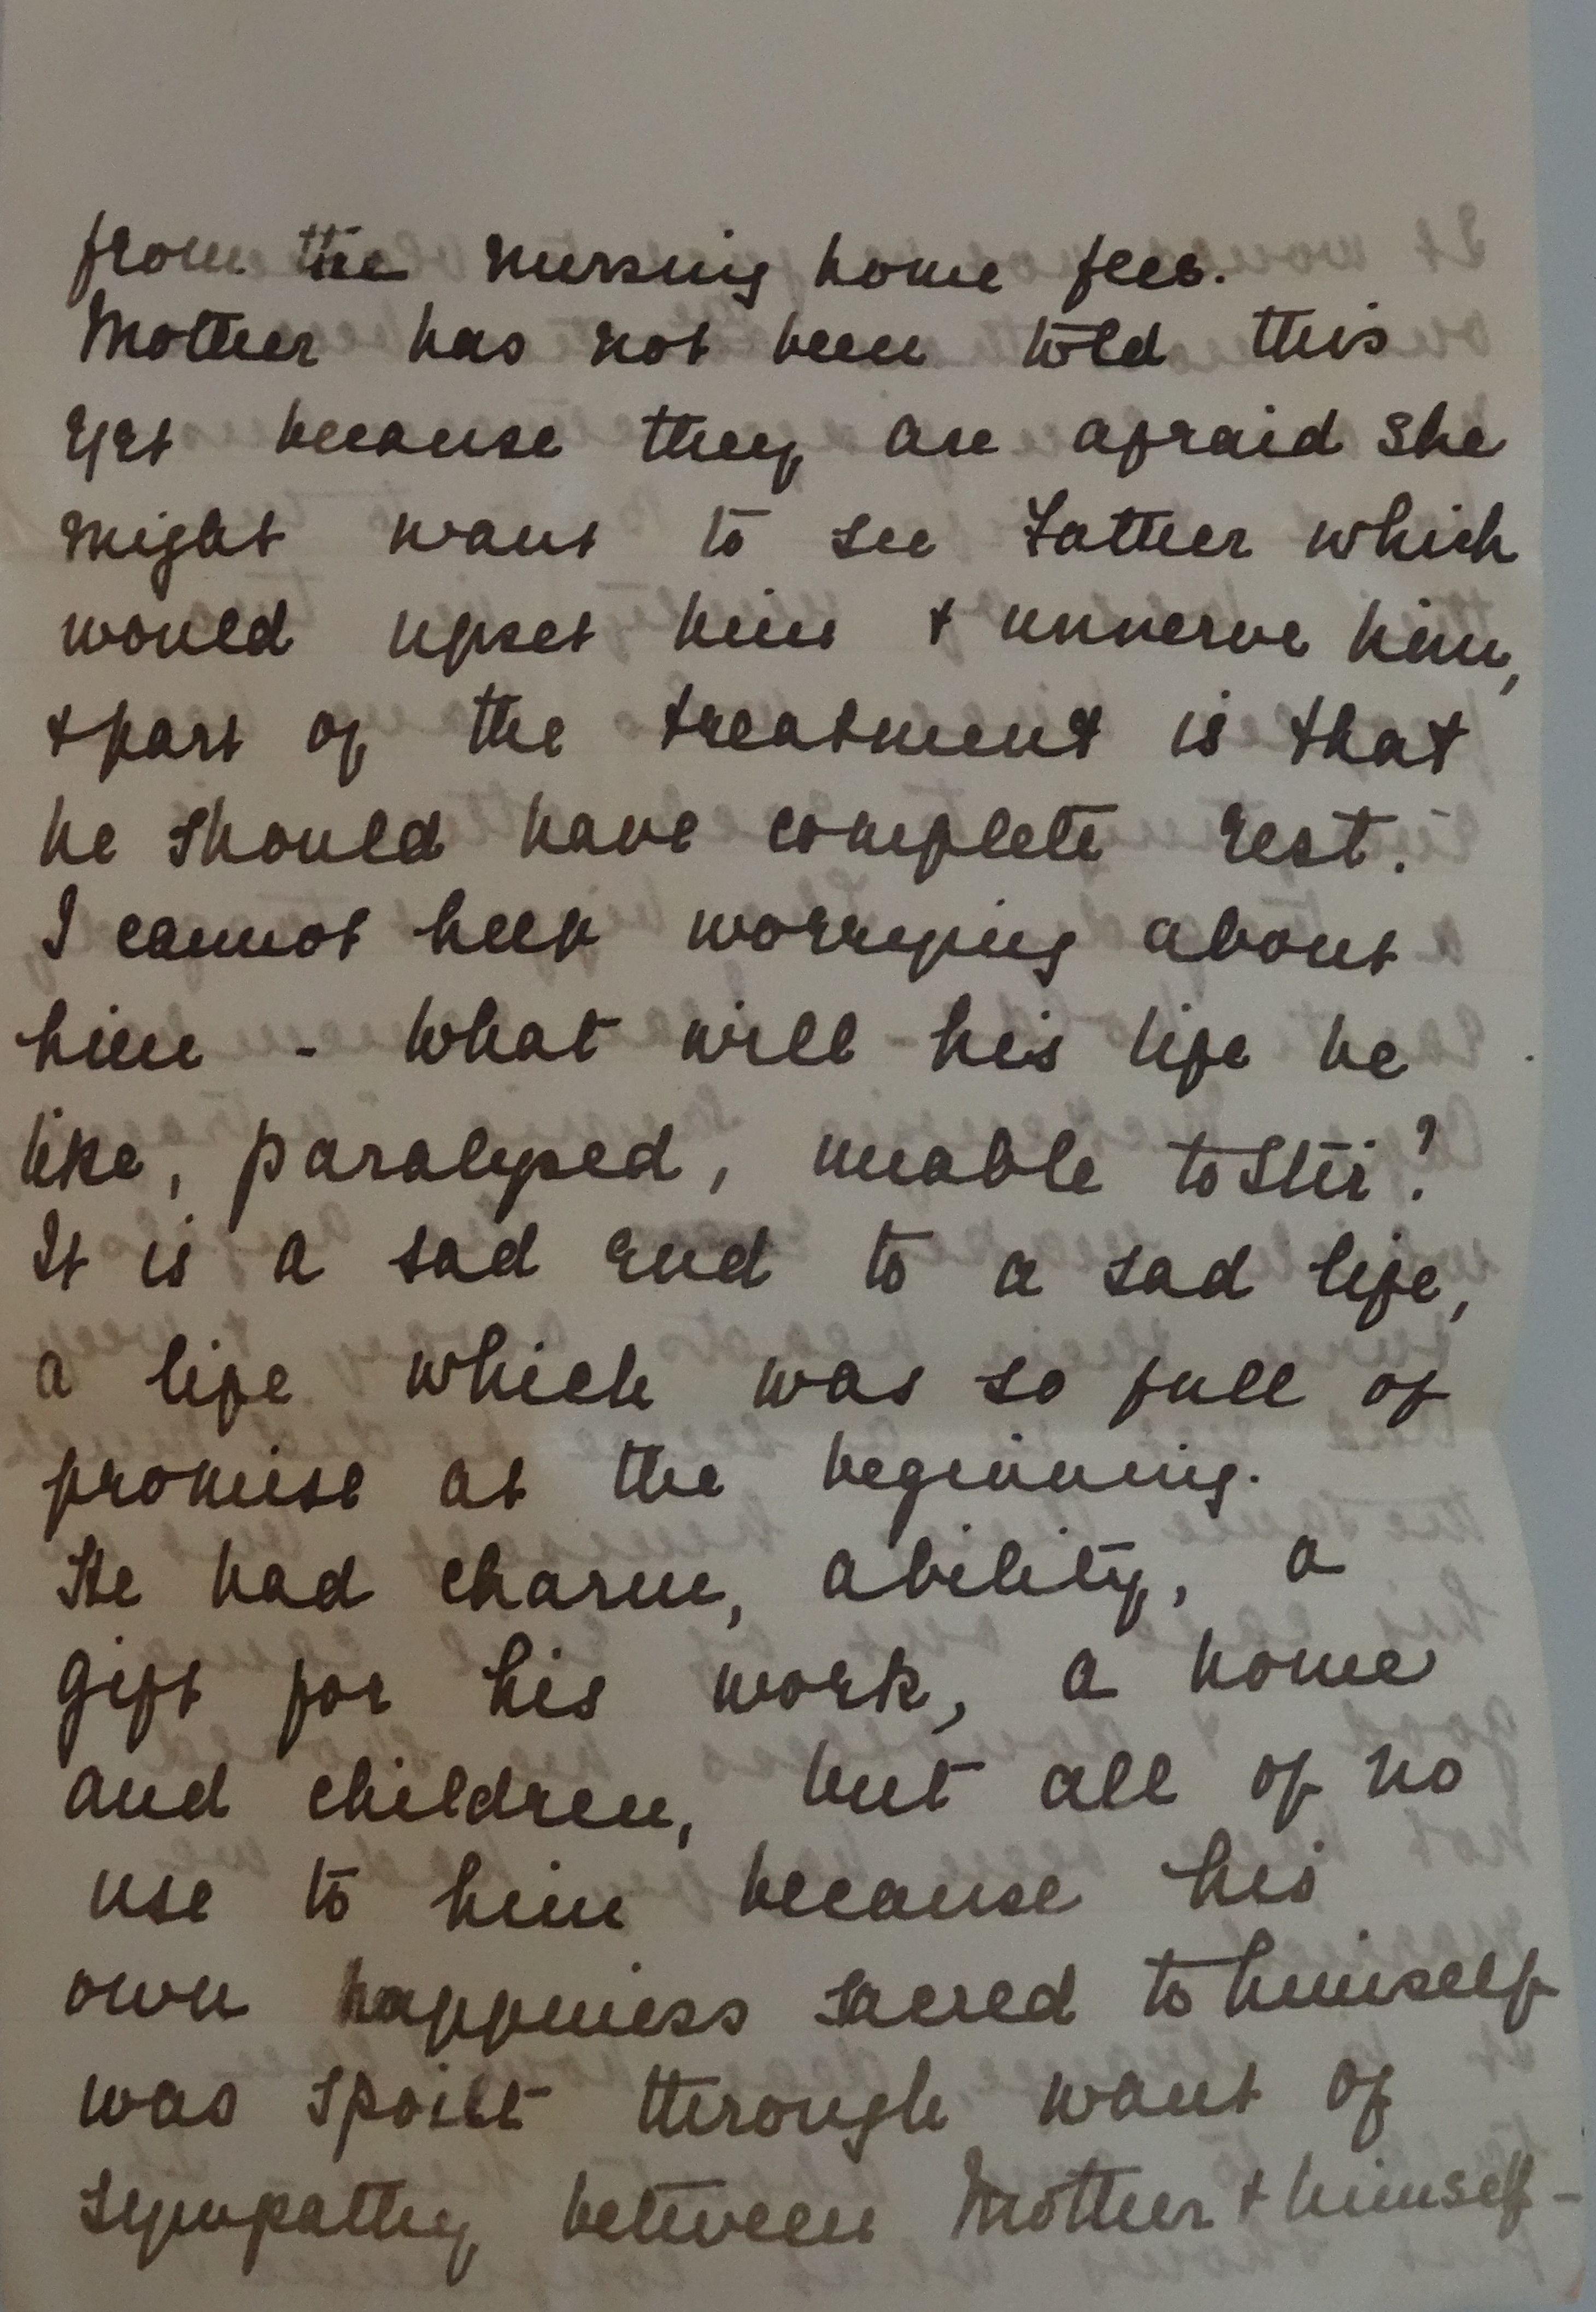 from the nursing home fees.
Mother has not been told this
yet because they are afraid she
might want to see Father which
would upset him + unnerve him,
+ part of the treatment is that
he should have complete rest.
I cannot help worrying about
him - what will his life be
like, paralysed, unable to stir?
It is a sad end to a sad life,
a life which was so full of
promise at the beginning.
He had charm, ability, a
gift for his work, a home
and children, but all of no
use to him because his
own happiness sacred to himself
was spoilt through want of
sympathy between Mother + himself -